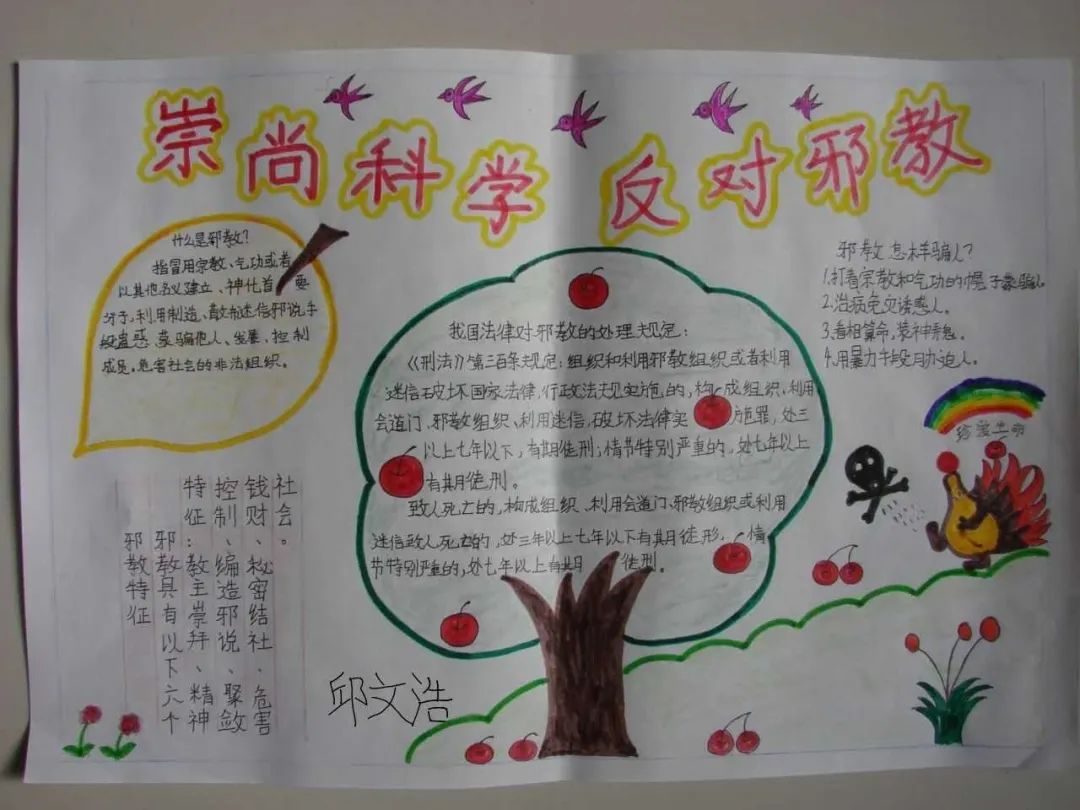 崇尚科学 反对邪教
什么是邪教?
指冒用宗教、气功或者
以其他名义建立、神化首要
分子,利用制造、散布迷信邪说手
段蛊惑、蒙骗他人、发展、控制
成员,危害社会的非法组织。
我国法律对邪教的处理规定:
《刑法》第三百条规定:组织和利用邪教组织或者利用
迷信破坏国家法律,行政法规实施的,构成组织、利用
会道门、邪教组织、利用迷信,破坏法律实施罪,处三
以上七年以下,有期徒刑;情节特别严重的,处七年以上
有期徒刑。
致人死亡的,构成组织、利用会道门、邪教组织或利用
迷信致人死亡的,处三年以上七年以下有期徒形,情
节特别严重的,处七年以上有期徒刑。
邪教怎样骗人?
1.打着宗教和气功的幌子蒙骗人
2.治病免灾诱惑人.
3.看相算命,装神弄鬼.
4.用暴力手段,胁迫人.
珍爱生命
邪教特征
邪教具有以下六个
特征:教主崇拜、精神
控制、编造邪说、聚敛
钱财、秘密结社、危害
社会。
邱文浩